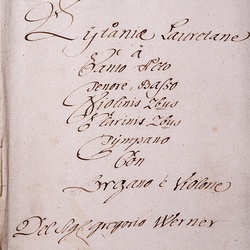 Lytaniæ Lauretanæ
â
Canto Alto
Tenore, Basso
Violinis 2bus
Clarinis 2bus
Tympano
Con
Organo è Violone
Del Sig: Gregorio Werner